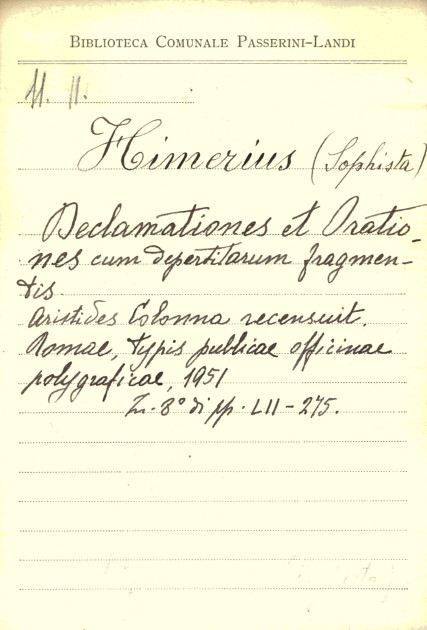 BIBLIOTECA COMUNALE PASSERINI-LANDI
11. 11.
Himerius (Sophista)
Declamationes et Oratio-
nes cum deperditarum fragmen-
tis
Aristides Colonna recensuit.
Romae, typis publicae officinae
polygraficae, 1951
In-8° di pp. LII-275.